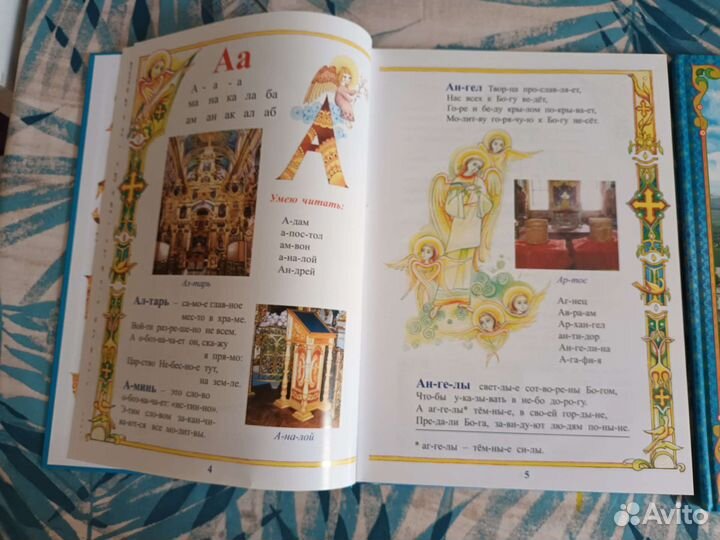 Аа
А - а - а
на на ка ла ба
ам ан ак ал аб
А
Умею читать:
А-дам
а-пос-тол
ам-вон
а-на-лой
Ан-дрей
Ал-тарь
Ал-тарь – са-мо-е глав-ное
мес-то в хра-ме.
Вой-ти раз-ре-ше-но не всем.
А о-боз-на-ча-ет он, ска-жу
я пря-мо:
Цар-ство Не-бес-но-е тут,
на зем-ле.
А-минь – это сло-во
о-боз-на-ча-ет: «ис-тин-но».
Э-тим сло-вом за-кан-чи-
ва-ют-ся все мо-лит-вы.
А-на-лой
4
Ан-гел Твор-ца про-слав-ля-ет,
Нас всех к Бо-гу ве-дёт,
Го-ре и бе-ду кры-лом по-кры-ва-ет,
Мо-лит-ву го-ря-чу-ю к Бо-гу не-сёт.
Ар-тос
Аг-нец
Ав-ра-ам
Ар-хан-гел
ан-ти-дор
Ан-ге-ли-на
А-га-фи-я
Ан-ге-лы свет-лы-е сот-во-ре-ны Бо-гом,
Что-бы у-ка-зы-вать в не-бо до-ро-гу.
А аг-ге-лы* тём-ны-е, в сво-ей гор-ды-не,
Пре-да-ли Бо-га, за-ви-ду-ют лю-дям по-ны-не.
* аг-ге-лы – тём-ны-е си-лы.
5
Avito